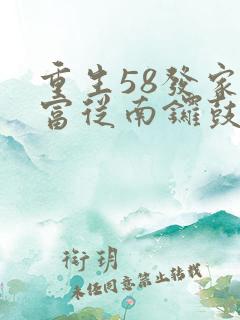 重生58發家
富從南鑼鼓
衔玥
未经同意禁止转载